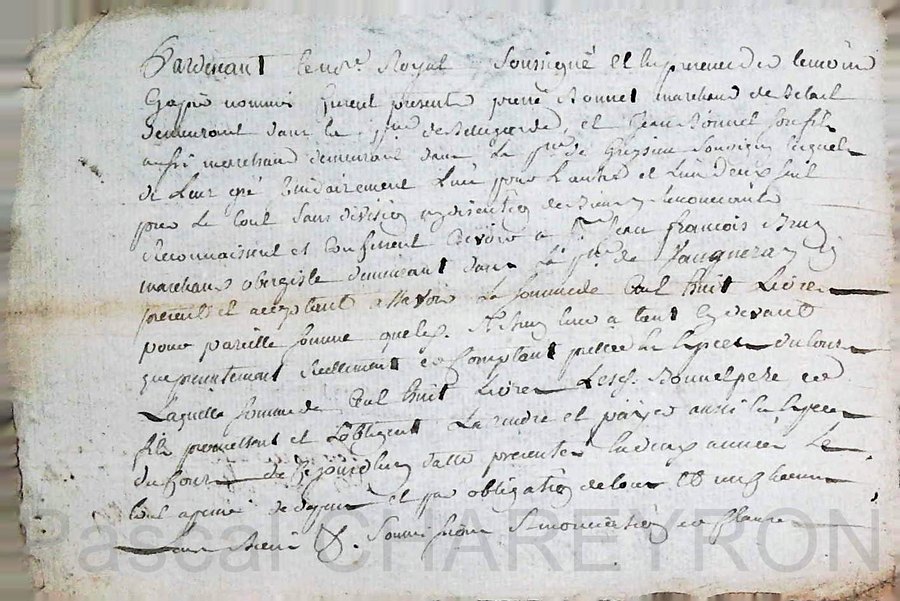 Pardevant le no.re Royal, soussigné et en presence des temoins
Cy après nommés furent présents pierre Bonnet marchand de
demeurant dans la p.sse de Bellegarde, et Jean Bonnet son fils
aussi marchand demeurant dans la p.sse de lesquels
de leur gré solidairement l'un pour l'autre et l'un d'eux seul
pour le tout sans division ny discution de biens, renonceants
Reconnaissent et confessent devoir à S.r Jean François Brun
marchand demeurant dans la p.sse de
présent et acceptant savoir la somme de Cent huit Livres
pour pareille somme que led. S.r Brun leur a tant cy devant
que presentement Reellement et Comptant prettée en especes du Cours
Laquelle somme de Cent huit Livres Lesd. Bonnet pere et
fils promettent et s'obligent La rendre et payer aussi en especes
du Cours de ce jourdhuy date presente en deux années Le
tout a peine de depens et par obligation de tous et uns chacuns
Leurs biens &. Soumissions Renonciations et clauses
Pascal CHAREYRON